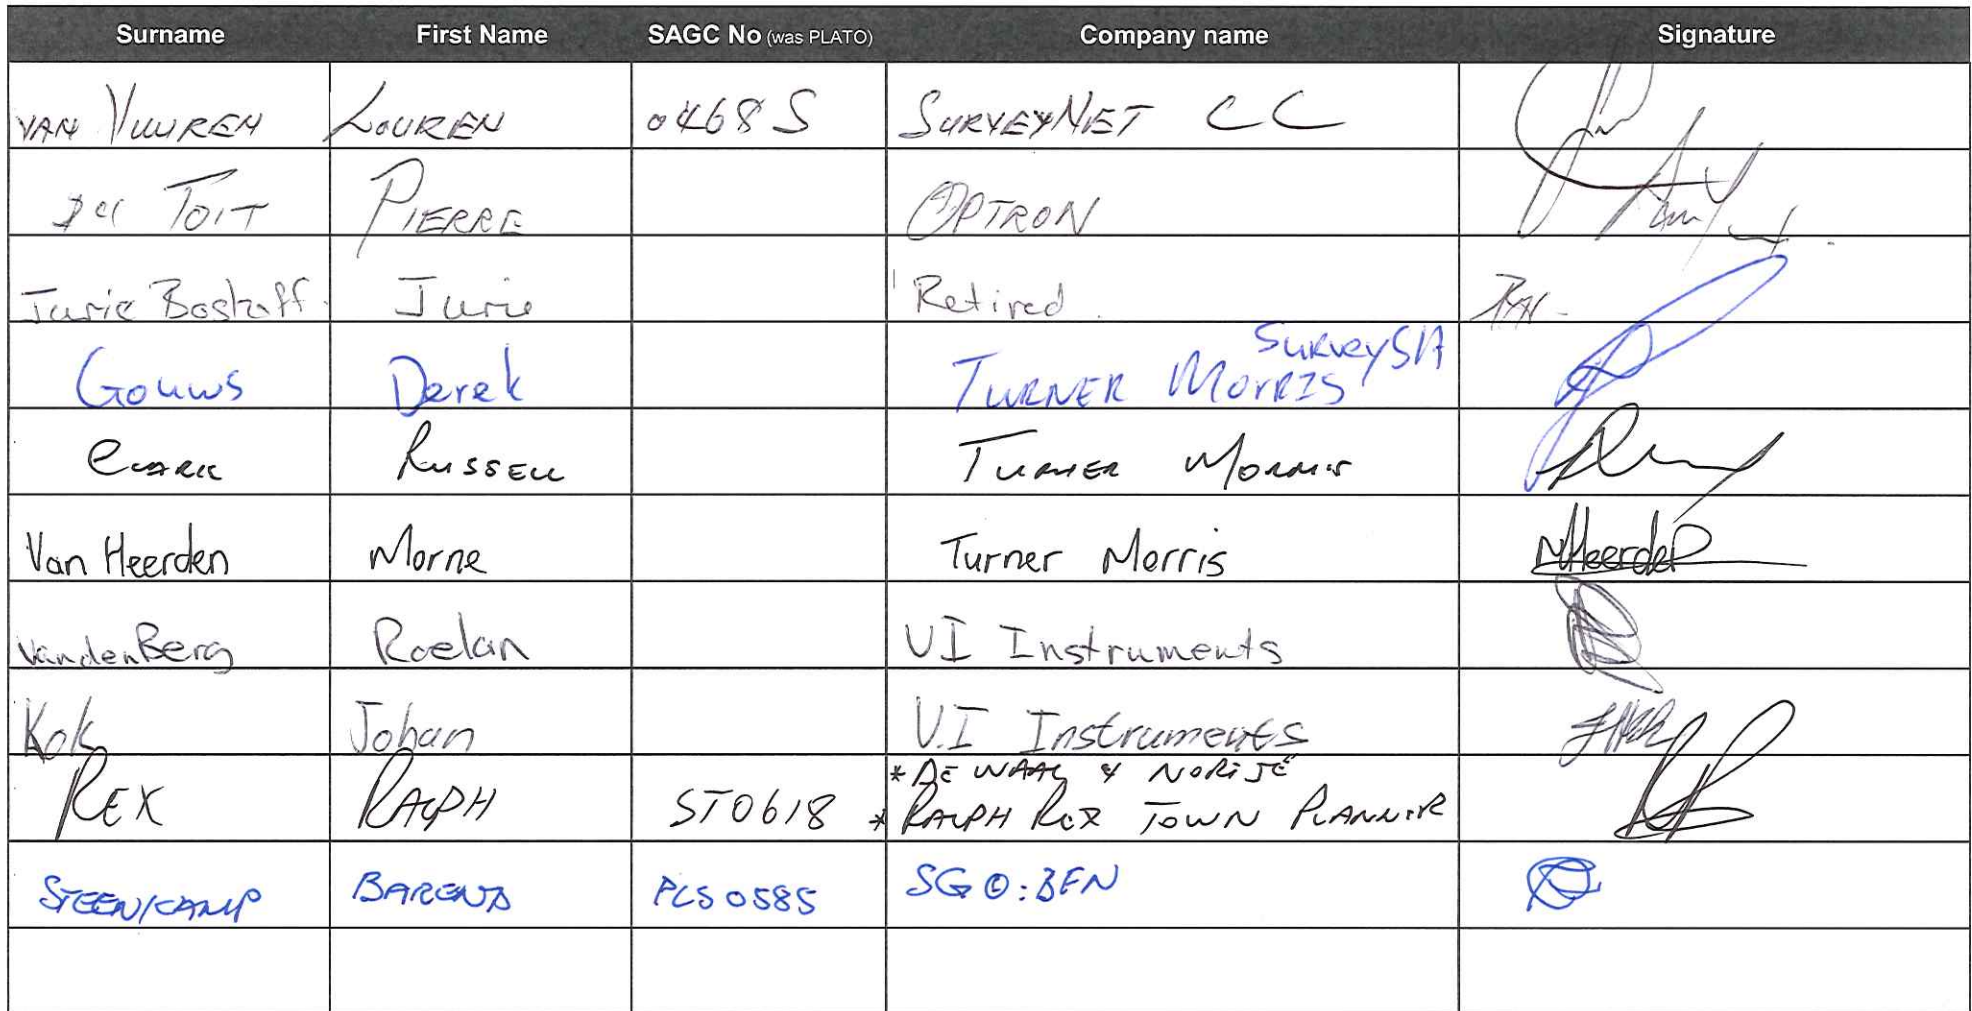 Surname First Name SAGC No (was PLATO) Company name Signature
VAN VUUREN LOUREN 0468 S SURVEYNET CC
Du TOIT PIERRE OPTRON
Jurie Boshoff Jurie Retired
Gouws Derek TURNER MORRIS SurveySA
CLARK RUSSELL TURNER MORRIS
Van Heerden Morne Turner Morris MHeerden
van den Berg Roelan VI Instruments
Kok Johan V.I Instruments
* DE WAAL & NORTJÉ
REX RALPH ST0618 * RALPH REX TOWN PLANNER
STEENKAMP BAREND PLS0585 SG O: BFN